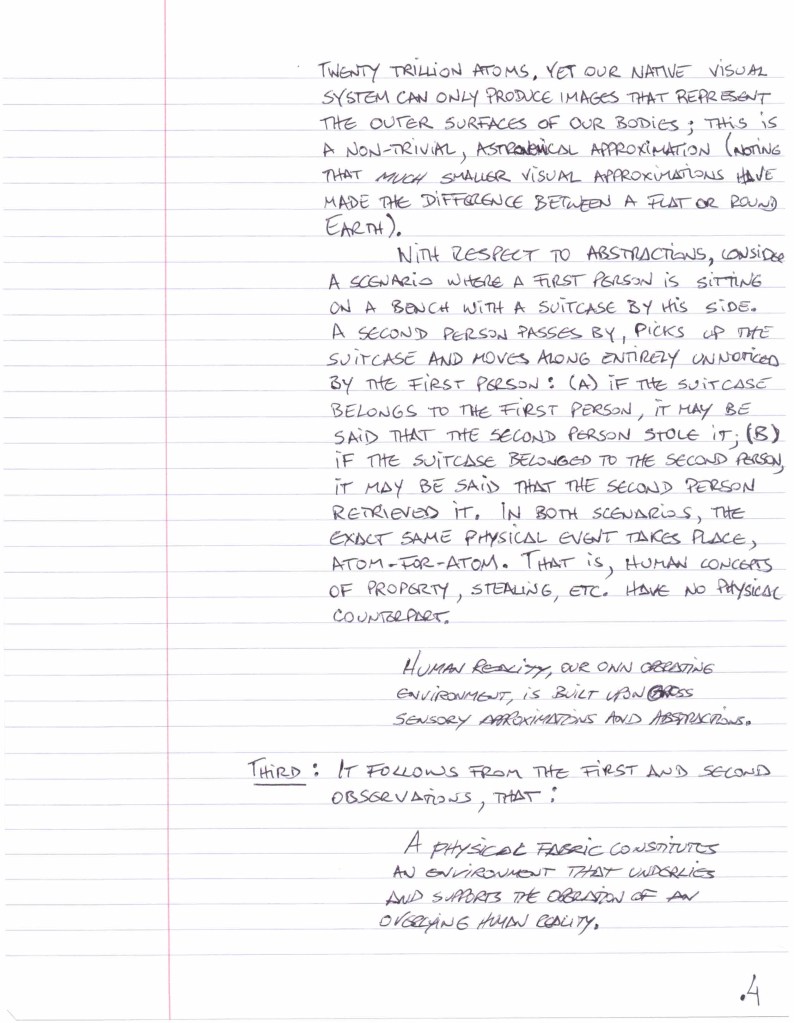 TWENTY TRILLION ATOMS, YET OUR NATIVE VISUAL
SYSTEM CAN ONLY PRODUCE IMAGES THAT REPRESENT
THE OUTER SURFACES OF OUR BODIES; THIS IS
A NON-TRIVIAL, ASTRONOMICAL APPROXIMATION (NOTING
THAT MUCH SMALLER VISUAL APPROXIMATIONS HAVE
MADE THE DIFFERENCE BETWEEN A FLAT OR ROUND
EARTH).
WITH RESPECT TO ABSTRACTIONS, CONSIDER
A SCENARIO WHERE A FIRST PERSON IS SITTING
ON A BENCH WITH A SUITCASE BY HIS SIDE.
A SECOND PERSON PASSES BY, PICKS UP THE
SUITCASE AND MOVES ALONG ENTIRELY UNNOTICED
BY THE FIRST PERSON: (A) IF THE SUITCASE
BELONGS TO THE FIRST PERSON, IT MAY BE
SAID THAT THE SECOND PERSON STOLE IT; (B)
IF THE SUITCASE BELONGED TO THE SECOND PERSON,
IT MAY BE SAID THAT THE SECOND PERSON
RETRIEVED IT. IN BOTH SCENARIOS, THE
EXACT SAME PHYSICAL EVENT TAKES PLACE,
ATOM-FOR-ATOM. THAT IS, HUMAN CONCEPTS
OF PROPERTY, STEALING, ETC. HAVE NO PHYSICAL
COUNTERPART.
HUMAN REALITY, OUR OWN OPERATING
ENVIRONMENT, IS BUILT UPON GROSS
SENSORY APPROXIMATIONS AND ABSTRACTIONS.
THIRD: IT FOLLOWS FROM THE FIRST AND SECOND
OBSERVATIONS, THAT:
A PHYSICAL FABRIC CONSTITUTES
AN ENVIRONMENT THAT UNDERLIES
AND SUPPORTS THE OPERATION OF AN
OVERLYING HUMAN REALITY.
.4